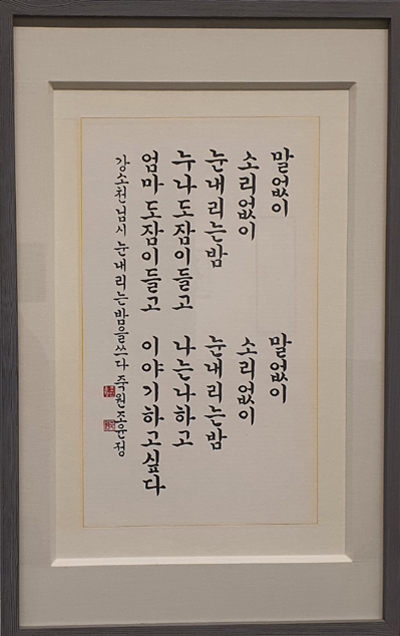 말없이
소리없이
눈내리는밤
누나도잠이들고
엄마도잠이들고
말없이
소리없이
눈내리는밤
나는나하고
이야기하고싶다
강소천님시 눈내리는밤을쓰다 죽원조윤정